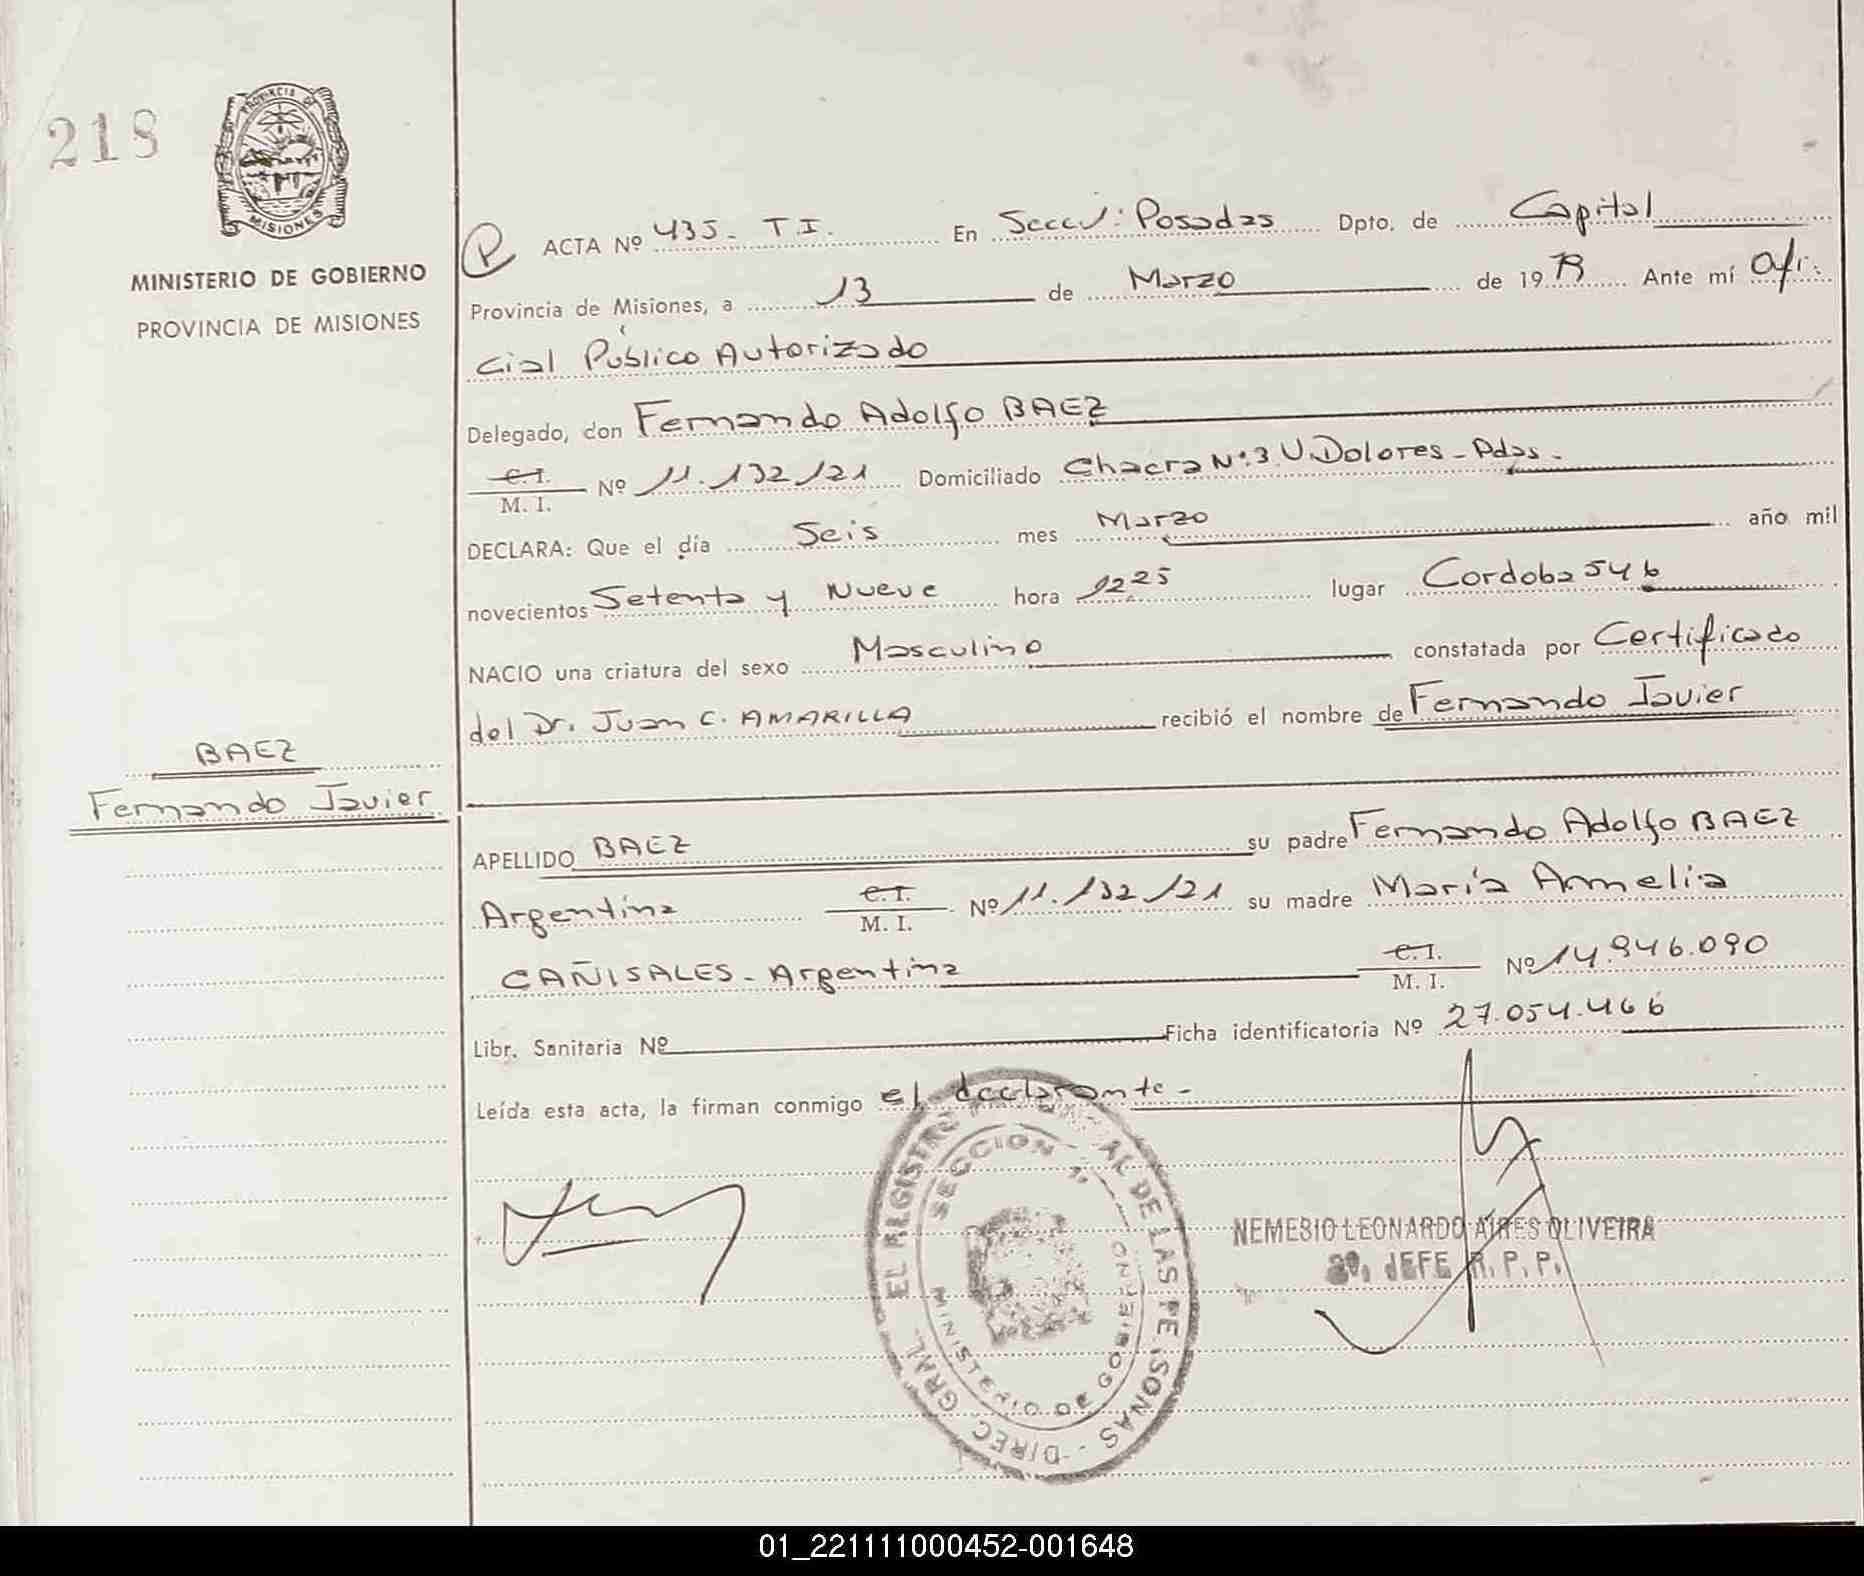 218
PROVINCIA DE
MISIONES
MINISTERIO DE GOBIERNO
PROVINCIA DE MISIONES
BAEZ
Fernando Javier
P ACTA Nº 435- T.I. En Posadas Dpto. de Capital
Provincia de Misiones, a 13 de Marzo de 19 79 Ante mí Ofi-
cial Público Autorizado
Delegado, don Fernando Adolfo BAEZ
C.I. M. I. Nº 11.132.121 Domiciliado Chacra Nº:3 V.Dolores - Pdas.
DECLARA: Que el día Seis mes Marzo año mil
novecientos Setenta y Nueve hora 12 25 lugar Cordoba 546
NACIO una criatura del sexo Masculino constatada por Certificado
del Dr. Juan C. AMARILLA recibió el nombre de Fernando Javier
APELLIDO BAEZ su padre Fernando Adolfo BAEZ
Argentina C.I. M. I. Nº 11.132.121 su madre María Amelia
CAÑISALES - Argentina C.I. M. I. Nº 14.946.090
Libr. Sanitaria Nº Ficha identificatoria Nº 27.054.466
Leída esta acta, la firman conmigo el declarante -
SECCION
MINISTERIO DE GOBIERNO
DE LAS PERSONAS - DIREC GRAL
NEMESIO LEONARDO AIRES OLIVEIRA
2º. JEFE R. P. P.
01_221111000452-001648